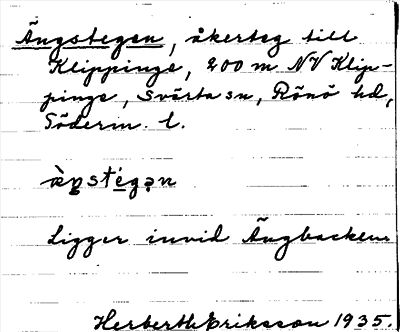 Ängstegen, åkerteg till
Klippinge, 200 m NV Klip-
pinge, Svärta sn, Rönö hd,
Söderm. l.
Ligger invid Ängbacken.
Herbert Eriksson 1935.